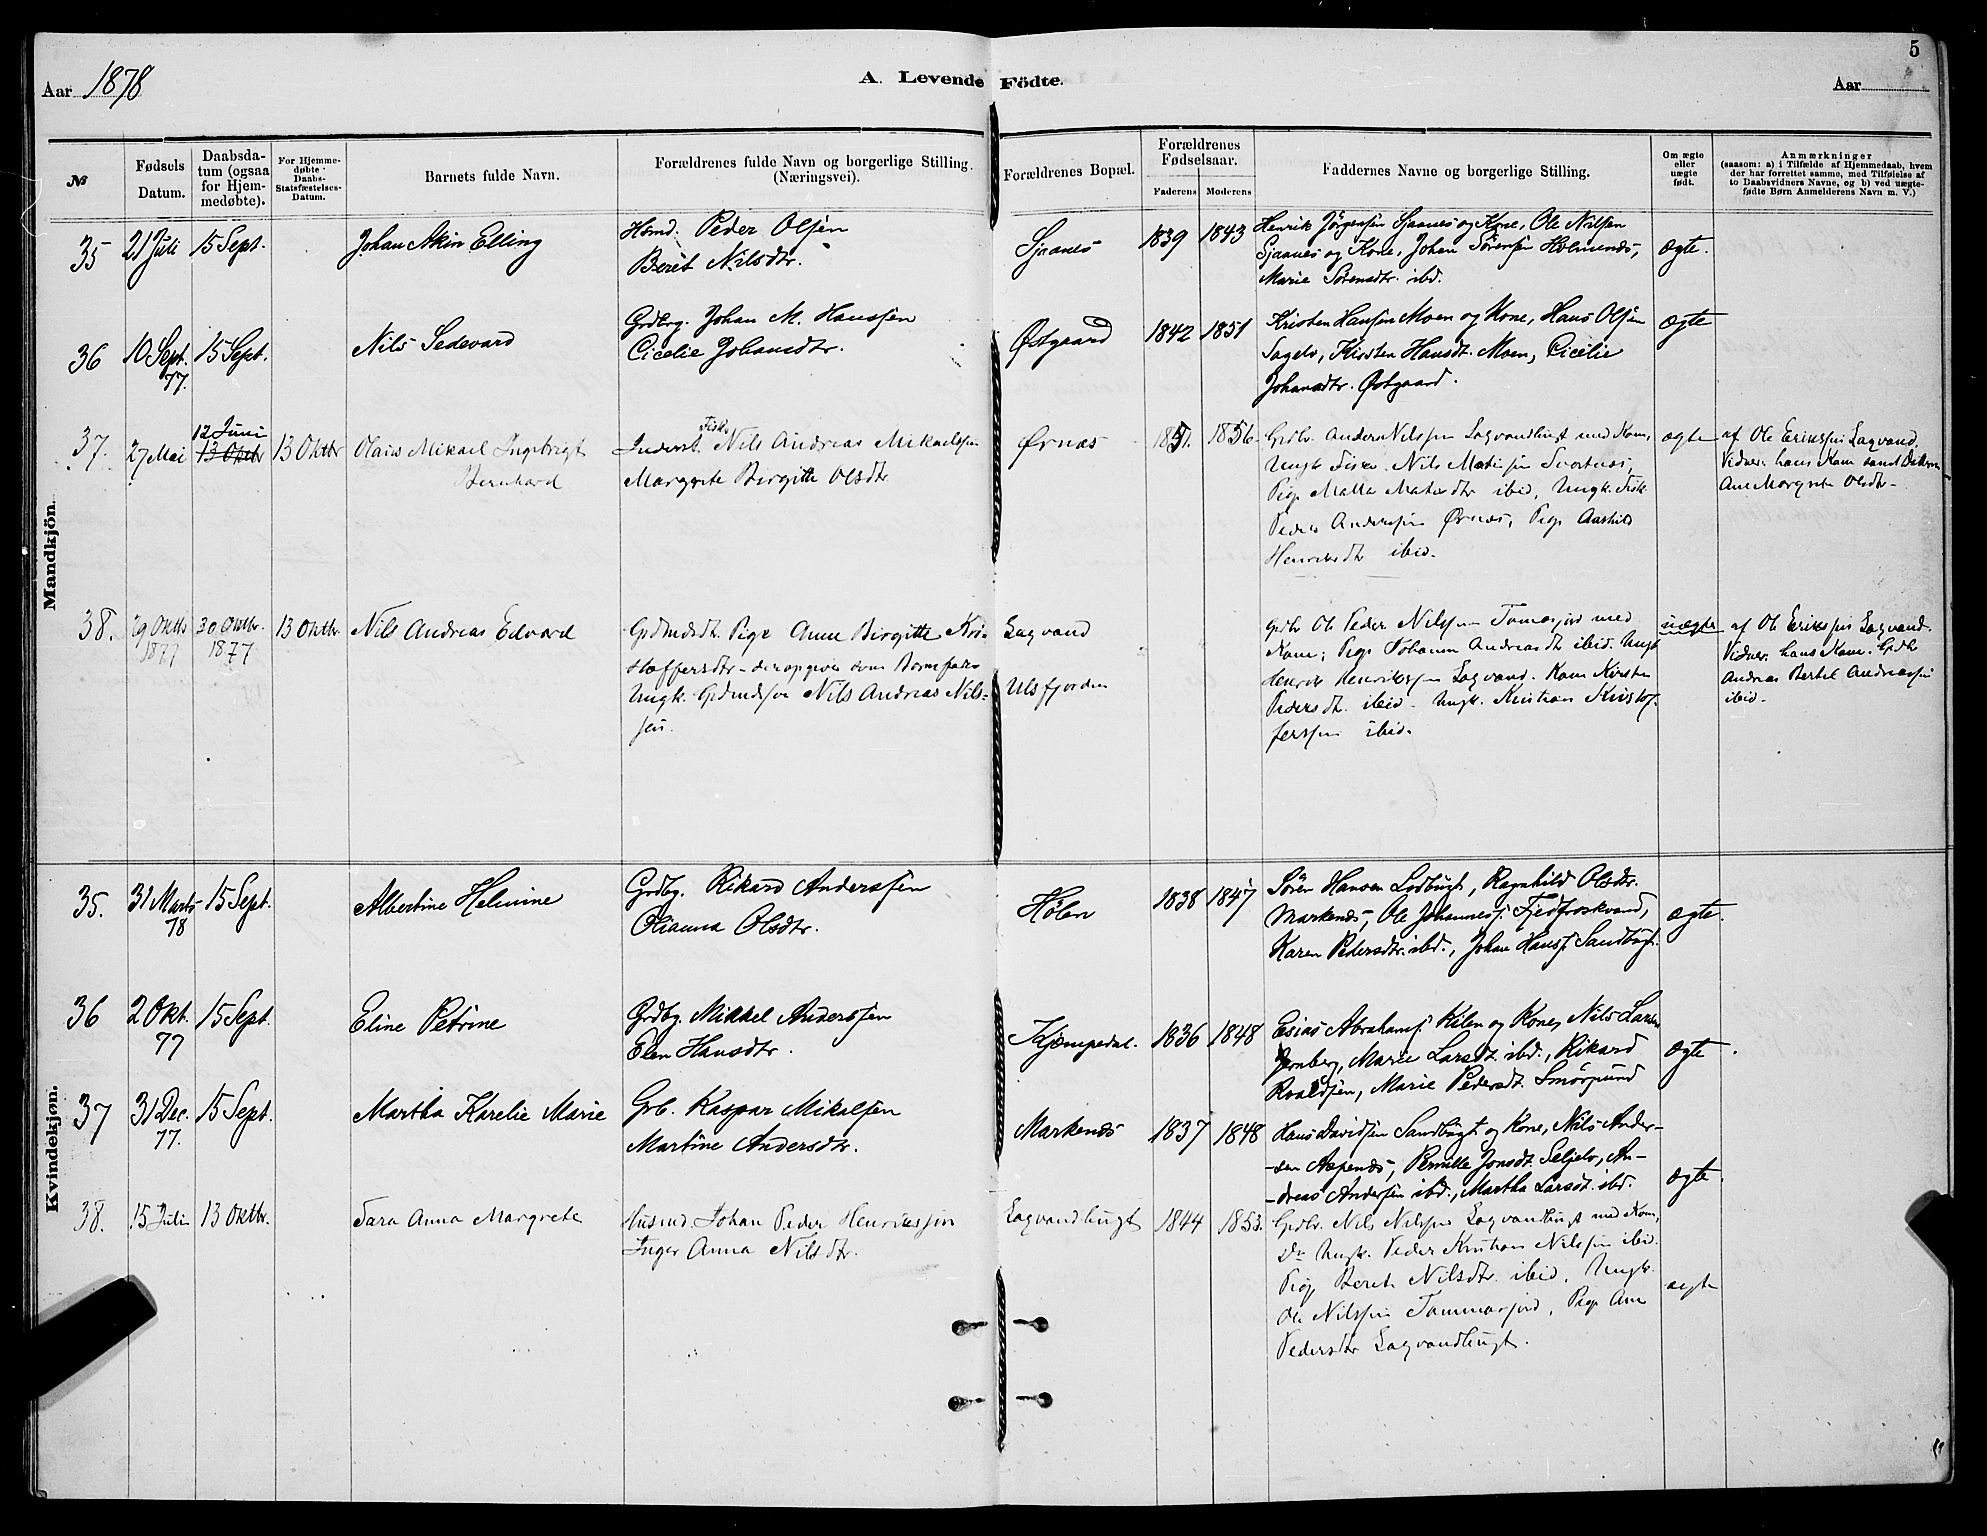 Aar 1878
A. Levende Födte.
5
Aar
№
Fødsels Datum.
Daabsda-
tum (ogsaa
for Hjem-
medøbte).
For Hjemme-
døbte
Daabs-
Statsfæstelses-
Datum.
Barnets fulde Navn.
Forældrenes fulde Navn og borgerlige Stilling.
(Næringsvei).
Forældrenes Bopæl.
Forældrenes
Fødselsaar.
Faderens
Moderens
Faddernes Navne og borgerlige Stilling.
Om ægte
eller
uægte
født.
Anmærkninger
(saasom: a) i Tilfælde af Hjemmedaab, hvem
der har forrettet samme, med Tilføielse af
to Daabsvidners Navne, og b) ved uægte-
fødte Børn Anmelderens Navn m. V.)
Mandkjön.
35 21 Juli 15 Sept. Johan Elling
Peder Olsen
Berit Nilsdtr.
Sjaanes 1839 1843
Henrik Jørgensen Sjaanes og Kone, Ole Nilsen
Sjaanes og Kone, Johan Sørensen Holmenes,
Marie Sørensdtr. ibd.
ægte.
36 10 Sept. 77. 15 Sept. Nils Sedevard
Grdbrg. Johan M. Hanssen
Cicelie Johansdtr.
Østgaard 1842 1851
Kristen Hansen Moen og Kone, Hans Olsen
Sagelv, Kirsten Hansdt. Moen, Cicelie
Johansdtr. Østgaard.
ægte
37. 27 Mai 12 Juni 13 Oktbr 13 Oktbr Olais Mikael Ingebrigt
Bernhard
Inderst Fisk. Nils Andreas Mikaelssen
Margrete Birgitte Olsdtr
Ørnæs 1851. 1856.
Grdbr. Anders Nilssen Lagvandbugt med Kone,
Ungk. Fisker Nils Matisen
Pige Malla ibid, Ungk. Fisk.
Peder Anderssen Ørnæs, Pige
Henriksdtr ibid.
ægte
af Ole Erikssen Lagvand.
Vidner: hans Kone samt Datteren
Ane Margrete Olsdtr-
38. 29 Oktb 1877 30 Oktbr. 1877 13 Oktbr Nils Andreas Edvard
Grdmdsdtr. Pige Anne Birgitte Kri-
stoffersdtr- der opgiver som Barnefader
Ungk. Grdmdssøn Nils Andreas Nils-
sen.
Lagvand
Ulsfjorden
Grdbr Ole Peder Nilssen Tamasjord med
Kone; Pige Johanna Andreasdtr ibid. Ungk
Henrik Henrikssen Lagvand. Kone Kirsten
Pedersdt. ibid- Ungk. Kristian Kristof-
ferssen ibid.
uægte
af Ole Erikssen Lagvand.
Vidner: hans Kone. Grdbr
Andreas Bertel Andreassen
ibid-
Kvindekjøn.
35. 31 Marts 78 15 Sept. Albertine Helmine
Grdbg. Rikard Anderssen
Olianna Olsdtr.
Hølen 1838 1847
Sören Hansen Lodbugt, Ragnhild Olsdtr.
Markenæs, Ole Johannesf. Fjedfroskvand,
Karen Pedersdtr. ibd., Johan Hansf. Sandbugt.
ægte.
36 2 Okt. 77 15 Sept. Eline Petrine
Grdbg. Mikkel Anderssen
Elen Hansdtr.
Kjempedal. 1836 1848
Esias Abrahamf. Kilen og Kone, Nils Larsen
Jernberg, Marie Larsdt. ibd., Rikard
Roaldsen, Marie Pedersdt. Smörsund
ægte
37 31 Dec. 77. 15 Sept. Martha Karelie Marie
Grb. Kaspar Mikalsen
Martine Andersdtr.
Markenæs 1837 1848
Hans Davidsen Sandbugt og Kone, Nils Ander-
-sen Aspenæs, Pernille Jonsdt. Seljelv, An-
-dreas Andersen ibd., Martha Larsdt. ibd.
ægte.
38. 15 Juli 13 Oktbr. Sara Anna Margrete
Husmd. Johan Peder Henrikssen
Inger Anna Nilsdtr.
Lagvandbugt 1844 1853.
Grdbr. Nils Nilssen Lagvandbugt med Kone,
Ds Ungk. Peder Kristian Nilssen ibid.
Pige Berit Nilsdtr. ibid. Ungk.
Ole Nilssen Tammasjord, Pige Ane
Pedersdtr Lagvandbugt.
ægte